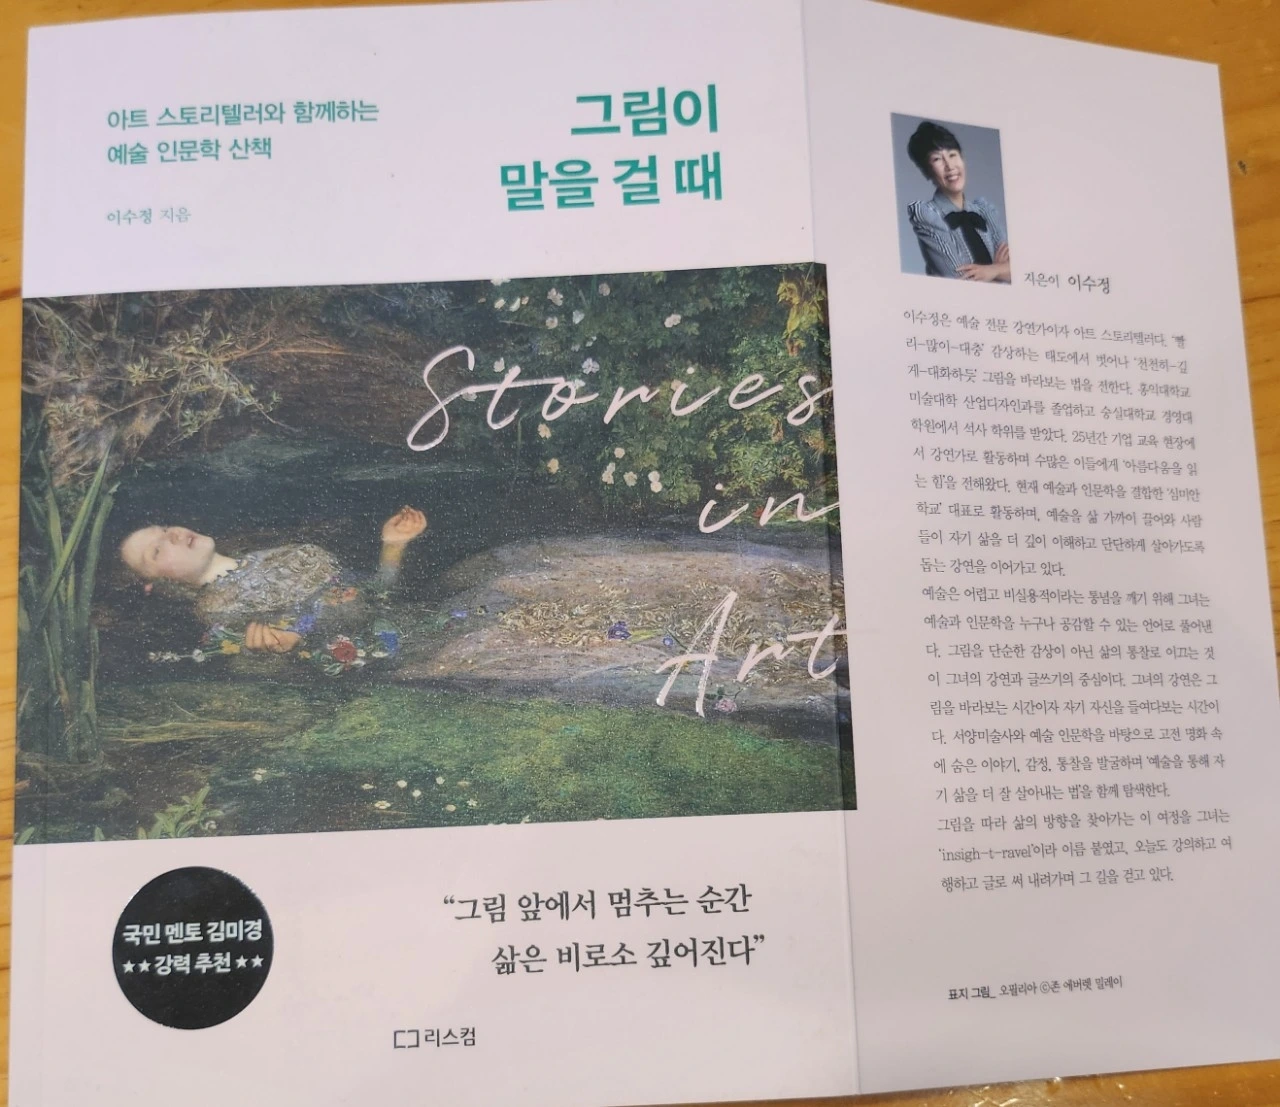 아트 스토리텔러와 함께하는
예술 인문학 산책
이수정 지음
그림이
말을 걸 때
Stories
in
Art
국민 멘토 김미경
★★강력 추천★★
“그림 앞에서 멈추는 순간
삶은 비로소 깊어진다”
리스컴
지은이 이수정
이수정은 예술 전문 강연가이자 아트 스토리텔러다. ‘빨
리-많이-대충’ 감상하는 태도에서 벗어나 ‘천천히-깊
게-대화하듯’ 그림을 바라보는 법을 전한다. 홍익대학교
미술대학 산업디자인과를 졸업하고 숭실대학교 경영대
학원에서 석사 학위를 받았다. 25년간 기업 교육 현장에
서 강연가로 활동하며 수많은 이들에게 ‘아름다움을 읽
는 힘’을 전해왔다. 현재 예술과 인문학을 결합한 ‘심미안
학교’ 대표로 활동하며, 예술을 삶 가까이 끌어와 사람
들이 자기 삶을 더 깊이 이해하고 단단하게 살아가도록
돕는 강연을 이어가고 있다.
예술은 어렵고 비실용적이라는 통념을 깨기 위해 그녀는
예술과 인문학을 누구나 공감할 수 있는 언어로 풀어낸
다. 그림을 단순한 감상이 아닌 삶의 통찰로 이끄는 것
이 그녀의 강연과 글쓰기의 중심이다. 그녀의 강연은 그
림을 바라보는 시간이자 자기 자신을 들여다보는 시간이
다. 서양미술사와 예술 인문학을 바탕으로 고전 명화 속
에 숨은 이야기, 감정, 통찰을 발굴하며 ‘예술을 통해 자
기 삶을 더 잘 살아내는 법’을 함께 탐색한다.
그림을 따라 삶의 방향을 찾아가는 이 여정을 그녀는
‘insigh-t-ravel’이라 이름 붙였고, 오늘도 강의하고 여
행하고 글로 써 내려가며 그 길을 걷고 있다.
표지 그림_ 오필리아 ⓒ존 에버렛 밀레이